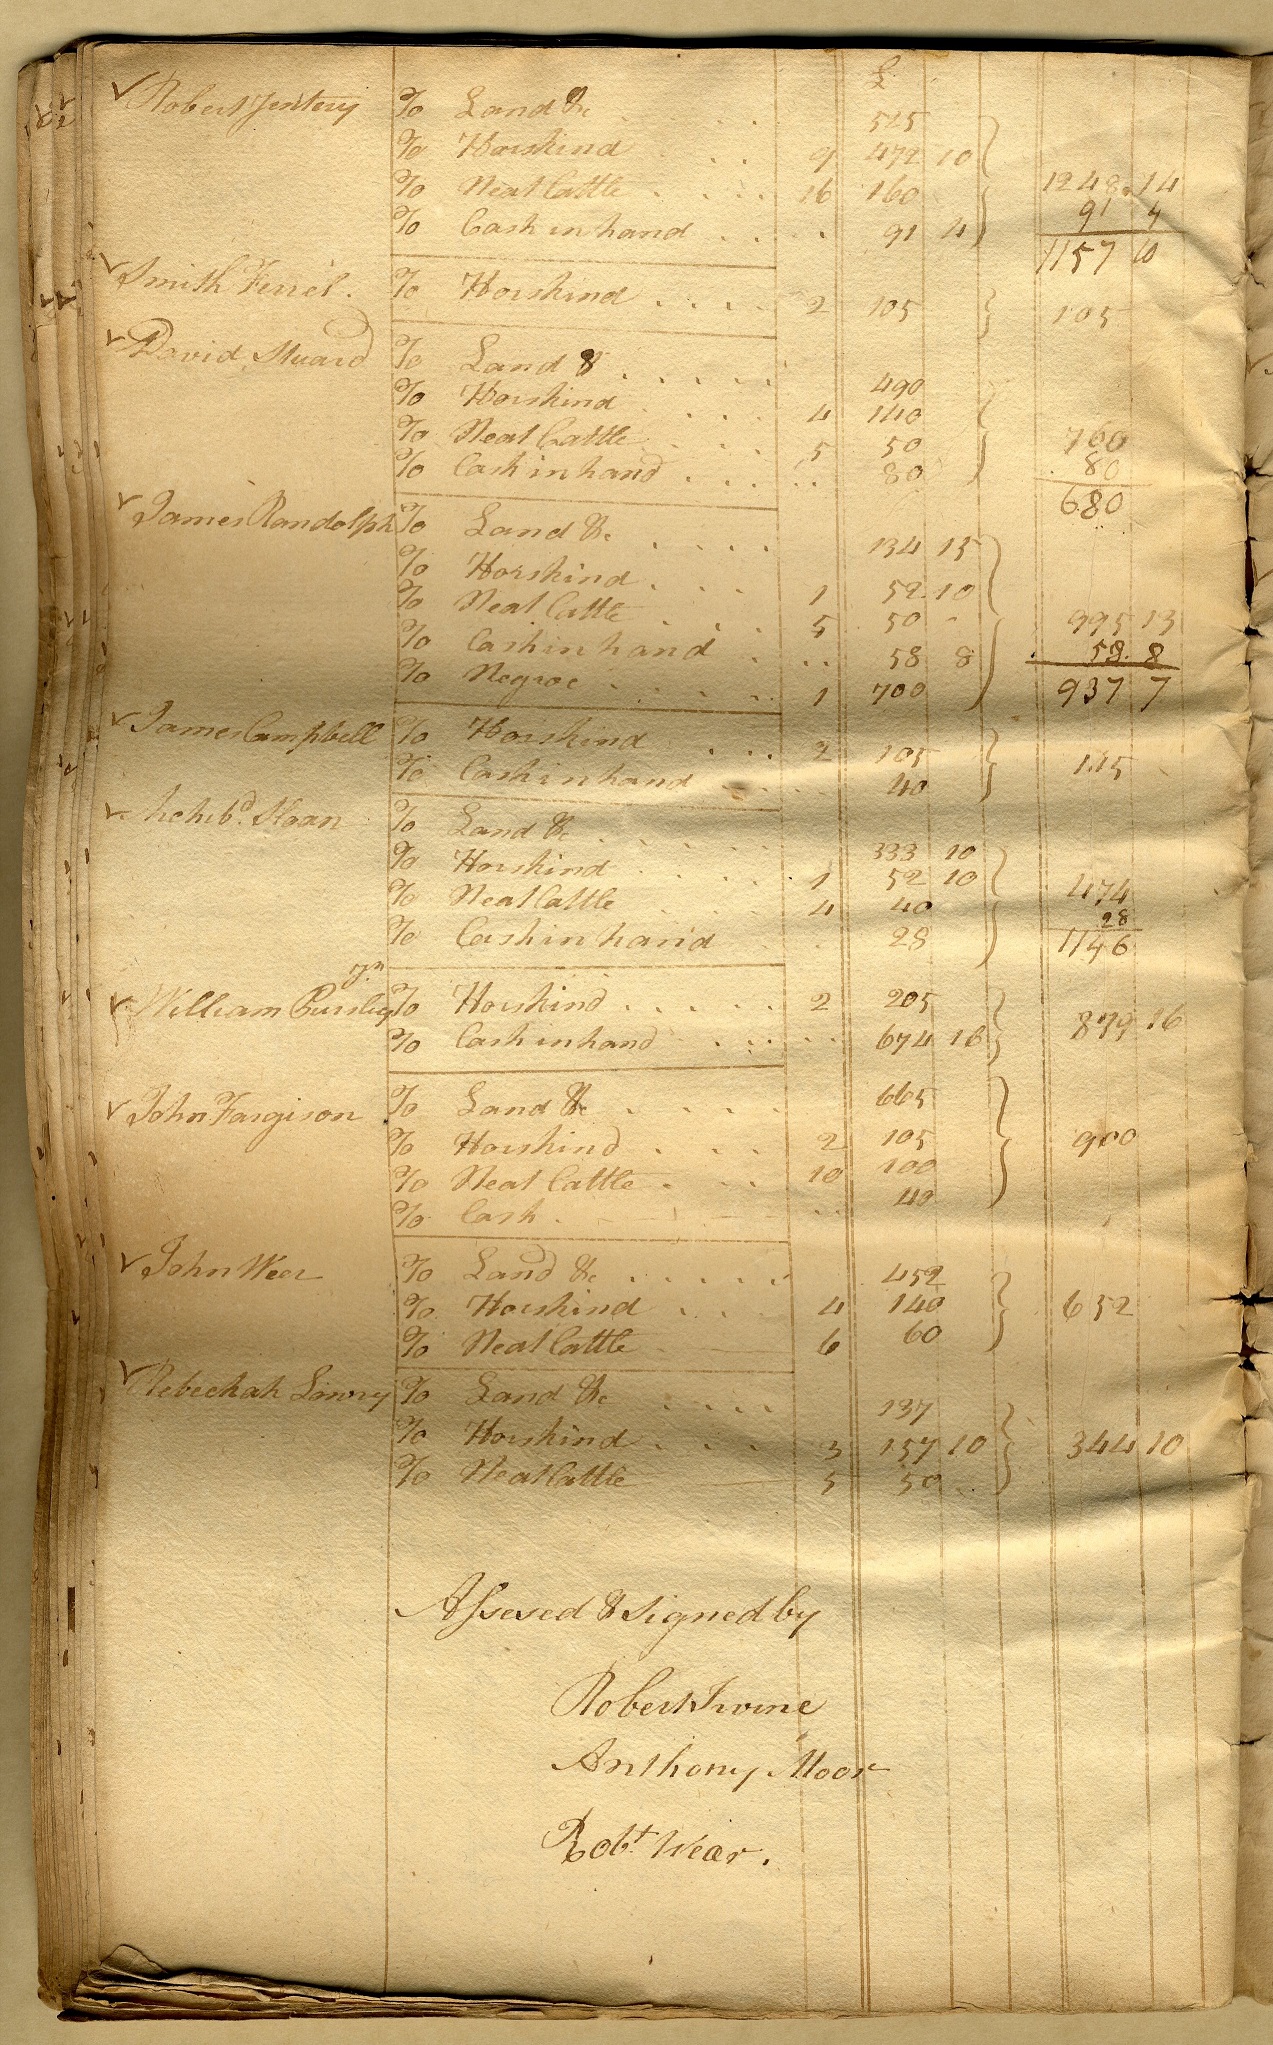 £
Robert Jentery To Land &c . . . 515
To Horskind . . . 9 472 10
To Neat Cattle . . . . 16 160 1248.14
To Cash in hand . . . . 91 4 91 4
1157 10
Smith Ferrel. To Horskind . . . . 2 105 105
David Stuard To Land & . . . . . 490
To Horskind . . . . 4 140
To Neat Cattle . . . 5 50 760
To Cash in hand . . . . . 80 80
680
James Randolph To Land &c . . . . 134 15
To Horskind . . . . 1 52 10
To Neat Cattle . . . . 5 50 - 995 13
To Cash in hand . . . 58 8 58. 8
To Negroe . . . . . 1 700 937 7
James Campbell To Horskind . . . 2 105 145
To Cash in hand . . . . 40
Archibd. Sloan To Land &c . . . . . 333 10
To Horskind . . . . 1 52 10
To Neat Cattle . . . . 4 40 474
To Cash in hand . . 28 28
1146
Jn
William Pursley To Horskind . . . . . 2 205 879 16
To Cash in hand . . . . . . 674 16
John Fargison To Land &c . . . . . 665
To Horskind . . . . 2 105 900
To Neat Cattle . . . 10 100
To Cash . . . 40
John Weer To Land &c . . . . . . 452
To Horskind . . . . 4 140 652
To Neat Cattle 6 60
Rebeckah Lowry To Land &c . . . . 137
To Horskind . . . . 3 157 10 344 10
To Neat Cattle 5 50
Assesed & signed by
Robert Irvine
Anthony Moor
Robt. Wear.